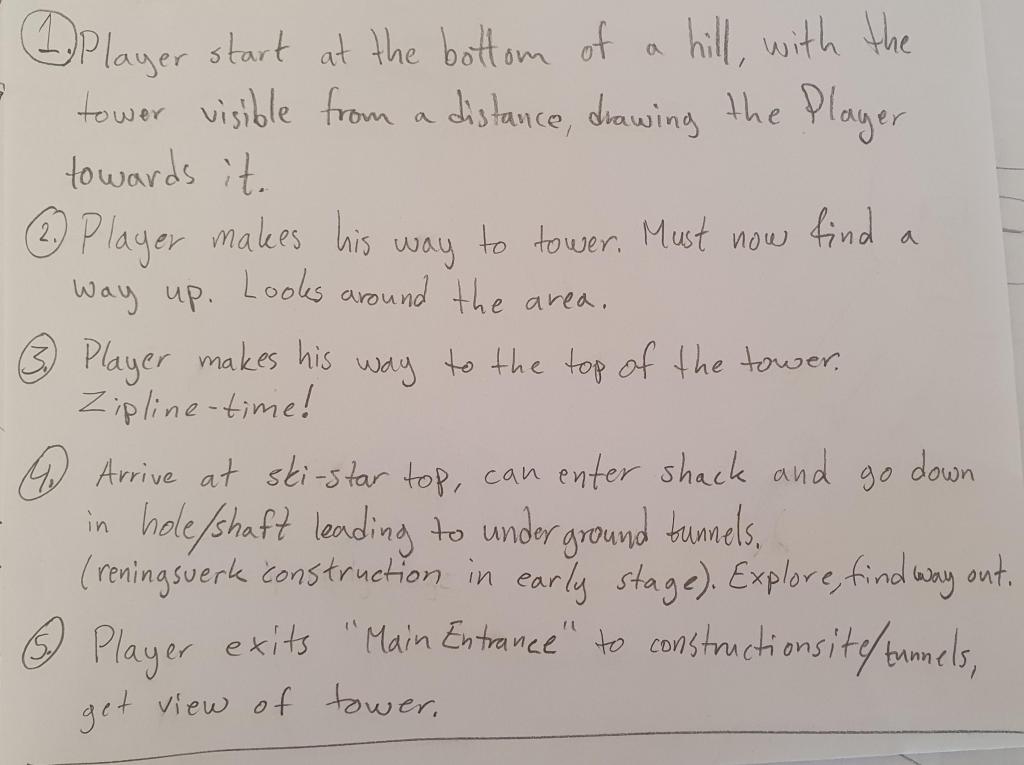 1. Player start at the bottom of a hill, with the
tower visible from a distance, drawing the Player
towards it.
2. Player makes his way to tower. Must now find a
way up. Looks around the area.
3. Player makes his way to the top of the tower.
Zipline-time!
4. Arrive at ski-star top, can enter shack and go down
in hole/shaft leading to underground tunnels.
(reningsverk construction in early stage). Explore, find way out.
5. Player exits "Main Entrance" to constructionsite/tunnels,
get view of tower.